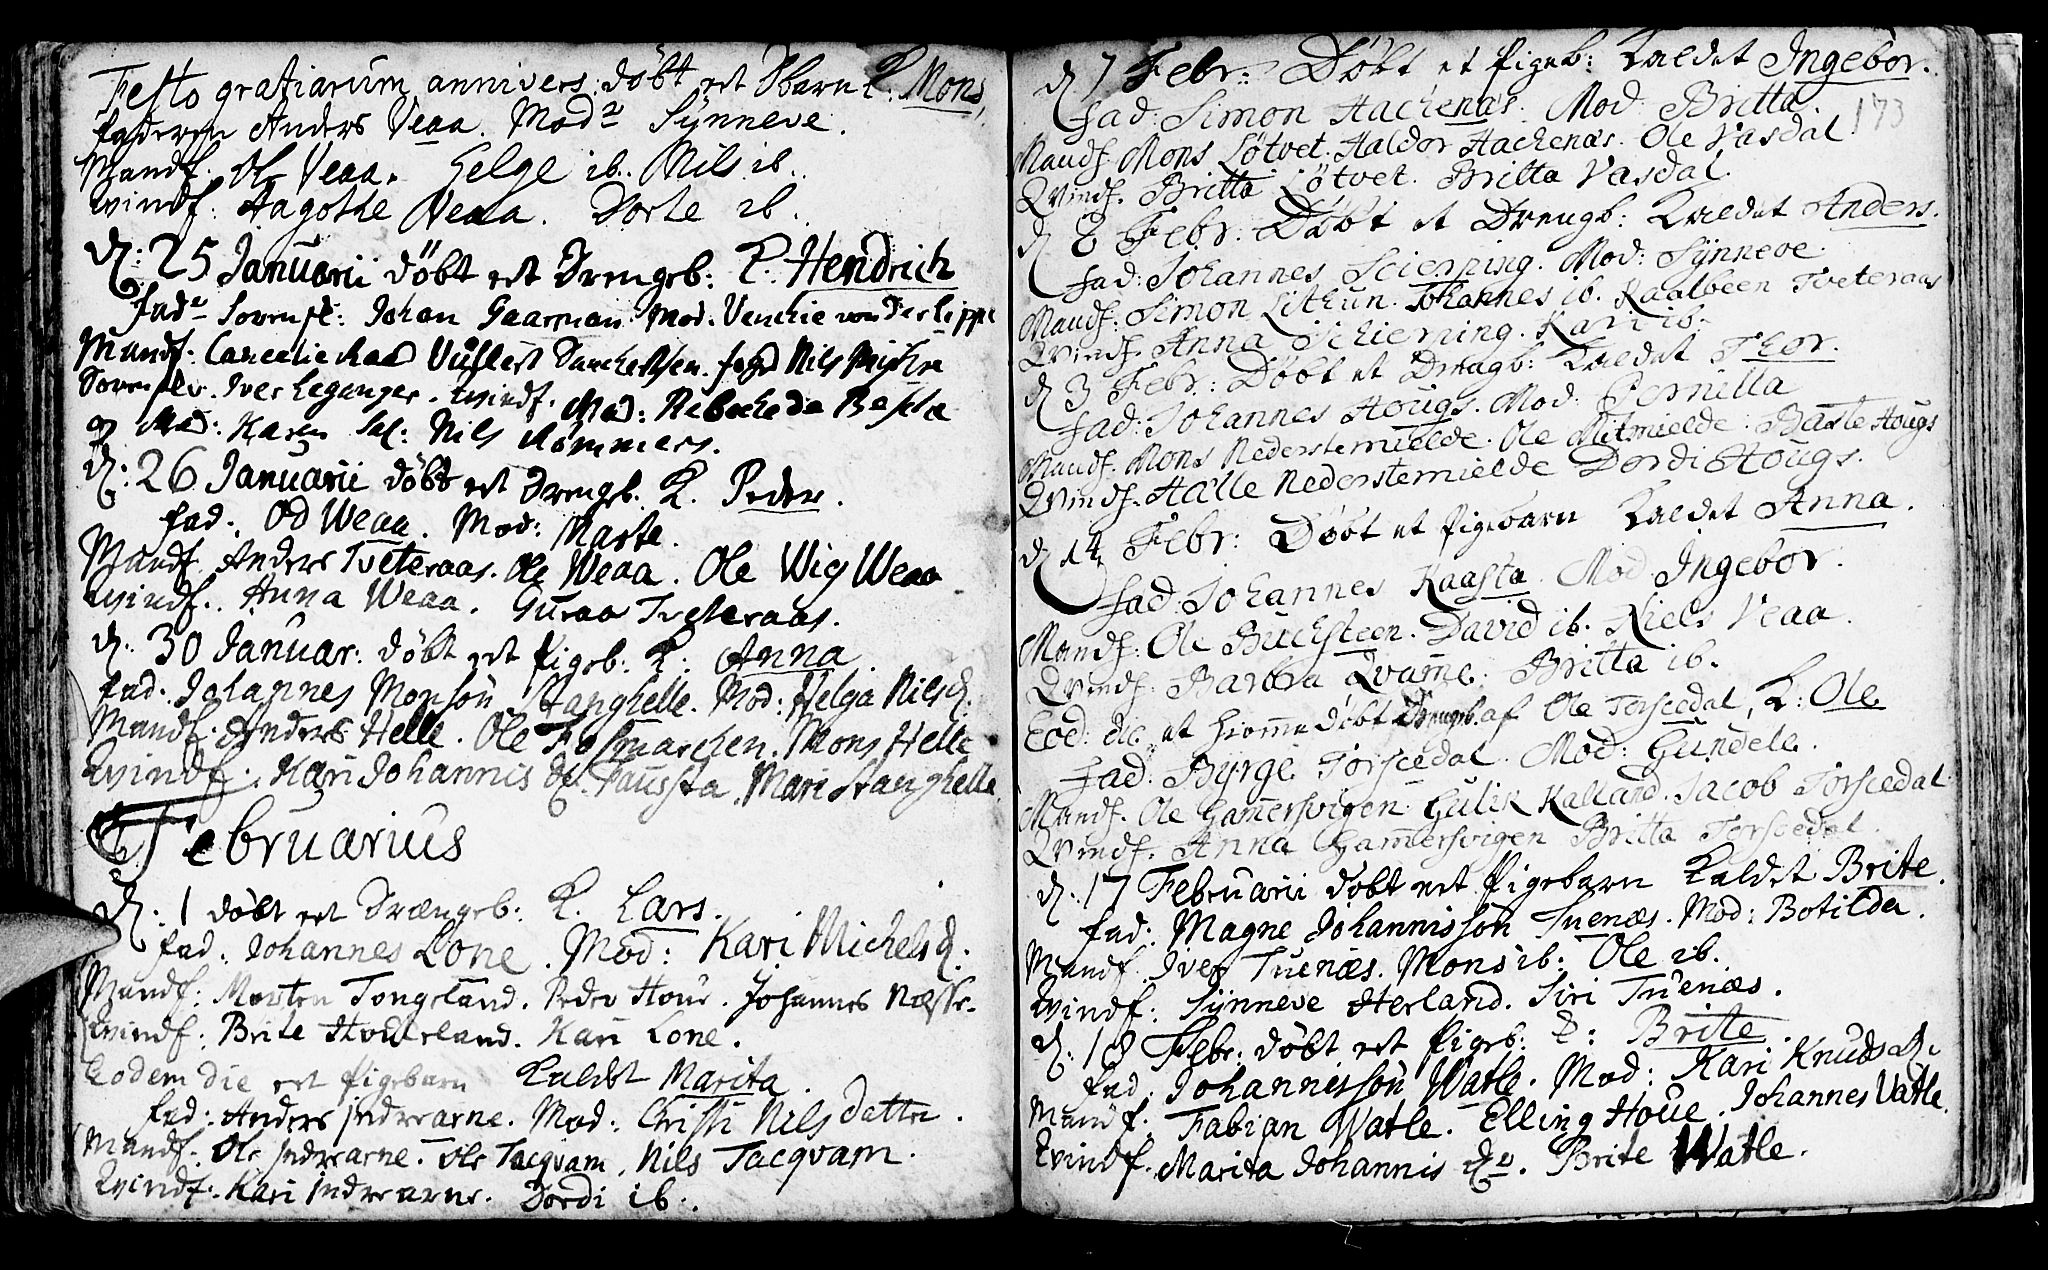 Festo gratiarum annivers: døbt et Dbarn K: Mons,
faderen Anders Veaa. Modr Synneve.
Mandf. Ole Veaa. Helge ib. Nils ib.
Qvindf. Aagothe Veaa. Dorte ib.
D: 25 Januarii døbt et Drengeb: K. Hendrich
fadr Sorenskr: Johan Gaarman. Mod. Venchie von der Lippe
Mandf. Cancelie Raad Vilhelt
Iver Leganger. Qvindf. Mad: Rebecke de
og Mad: Karen Sal: Nils Rømmers.
D: 26 Januarii døbt et Drengb. K. Peder.
fad: Od Weaa. Mod: Marte.
Mandf. Anders Tveteraas. Ole Weaa. Ole Wig Weaa
Qvindf. Anna Weaa. Guraa Tveteraas.
D. 30 Januar: døbt et Pigeb: K: Anna.
fad. Johannes Monsøn Stanghelle. Mod: Helga Nilsd.
Mandf. Anders Helle. Ole Fosmarchen. Mons Helle
Qvindf. Kari Johannis d. Faussta. Mari Stanghelle
Februarius
D: 1 døbt et Drængeb: K. Lars.
fad. Johannes Lone. Mod: Kari Michelsd.
Mandf: Morten Tongeland. Peder Houe. Johannes Næsse.
Qvindf: Brite Houcland. Kari Lone.
Eodem die et Pigebarn Kaldet Marita.
fad: Anders Indrearne. Mod: Christi Nils datter.
Mandf. Ole Indrearne. Ole Tacqvam. Nils Tacqvam.
Qvindf. Kari Indrearne. Dordi ib.
173
D 7 Febr: Døbt et Pigeb: Kaldet Ingebor.
fad: Simon Hachenæs. Mod: Britta.
Mandf. Mons Løtvet. Haldor Hachenæs. Ole Vasdal
Qvindf. Britta Løtvet. Britta Vasdal.
D 8 Febr. Døbt et Drengb: Kaldet Anders.
fad: Johannes Scierping. Mod: Synneve.
Mandf: Simon Lithun. Johannes ib. Raalbeen Tveteraas
Qvindf. Anna Schierping. Kari ib.
D 3 Febr: Døbt et Drengb: Kaldet Thor.
fad: Johannes Hougs. Mod: Pernilla
Mandf. Mons Nederstemielde. Ole Mitmielde. Baste Hougs
Qvindf. Halle Nederstemielde Dordi Hougs.
D 14 Febr: Døbt et Pigebarn Kaldet Anna.
fad: Johannes Raasta. Mod Ingebor.
Mandf: Ole Buchsteen. David ib. Niels Veaa.
Qvindf. Barbra Qvame. Britta ib.
Eod: die et hiemedøbt Drengb. af Ole Torscedal, K: Ole
fad: Byrge Torscedal. Mod: Gundele.
Mandf. Ole Gamersvigen. Gulik Kalland. Jacob Torscedal
Qvindf. Anna Gamersvigen Britta Torscedal.
D. 17 Februarii døbt et Pigebarn Kaldet Brite.
fad: Magne Johannissøn Tuenæs. Mod: Botilda.
Mandf. Iver Tuenæs. Mons ib. Ole ib.
Qvindf: Synneve Herland. Siri Tuenæs.
D. 18 Febr. døbt et Pigeb: K: Brite.
fad: Johannissøn Watle. Mod: Kari Knudsd.
Mandf. Fabian Watle. Elling Houe. Johannes Vatle.
Qvindf. Marita Johannis dr. Brite Watle.